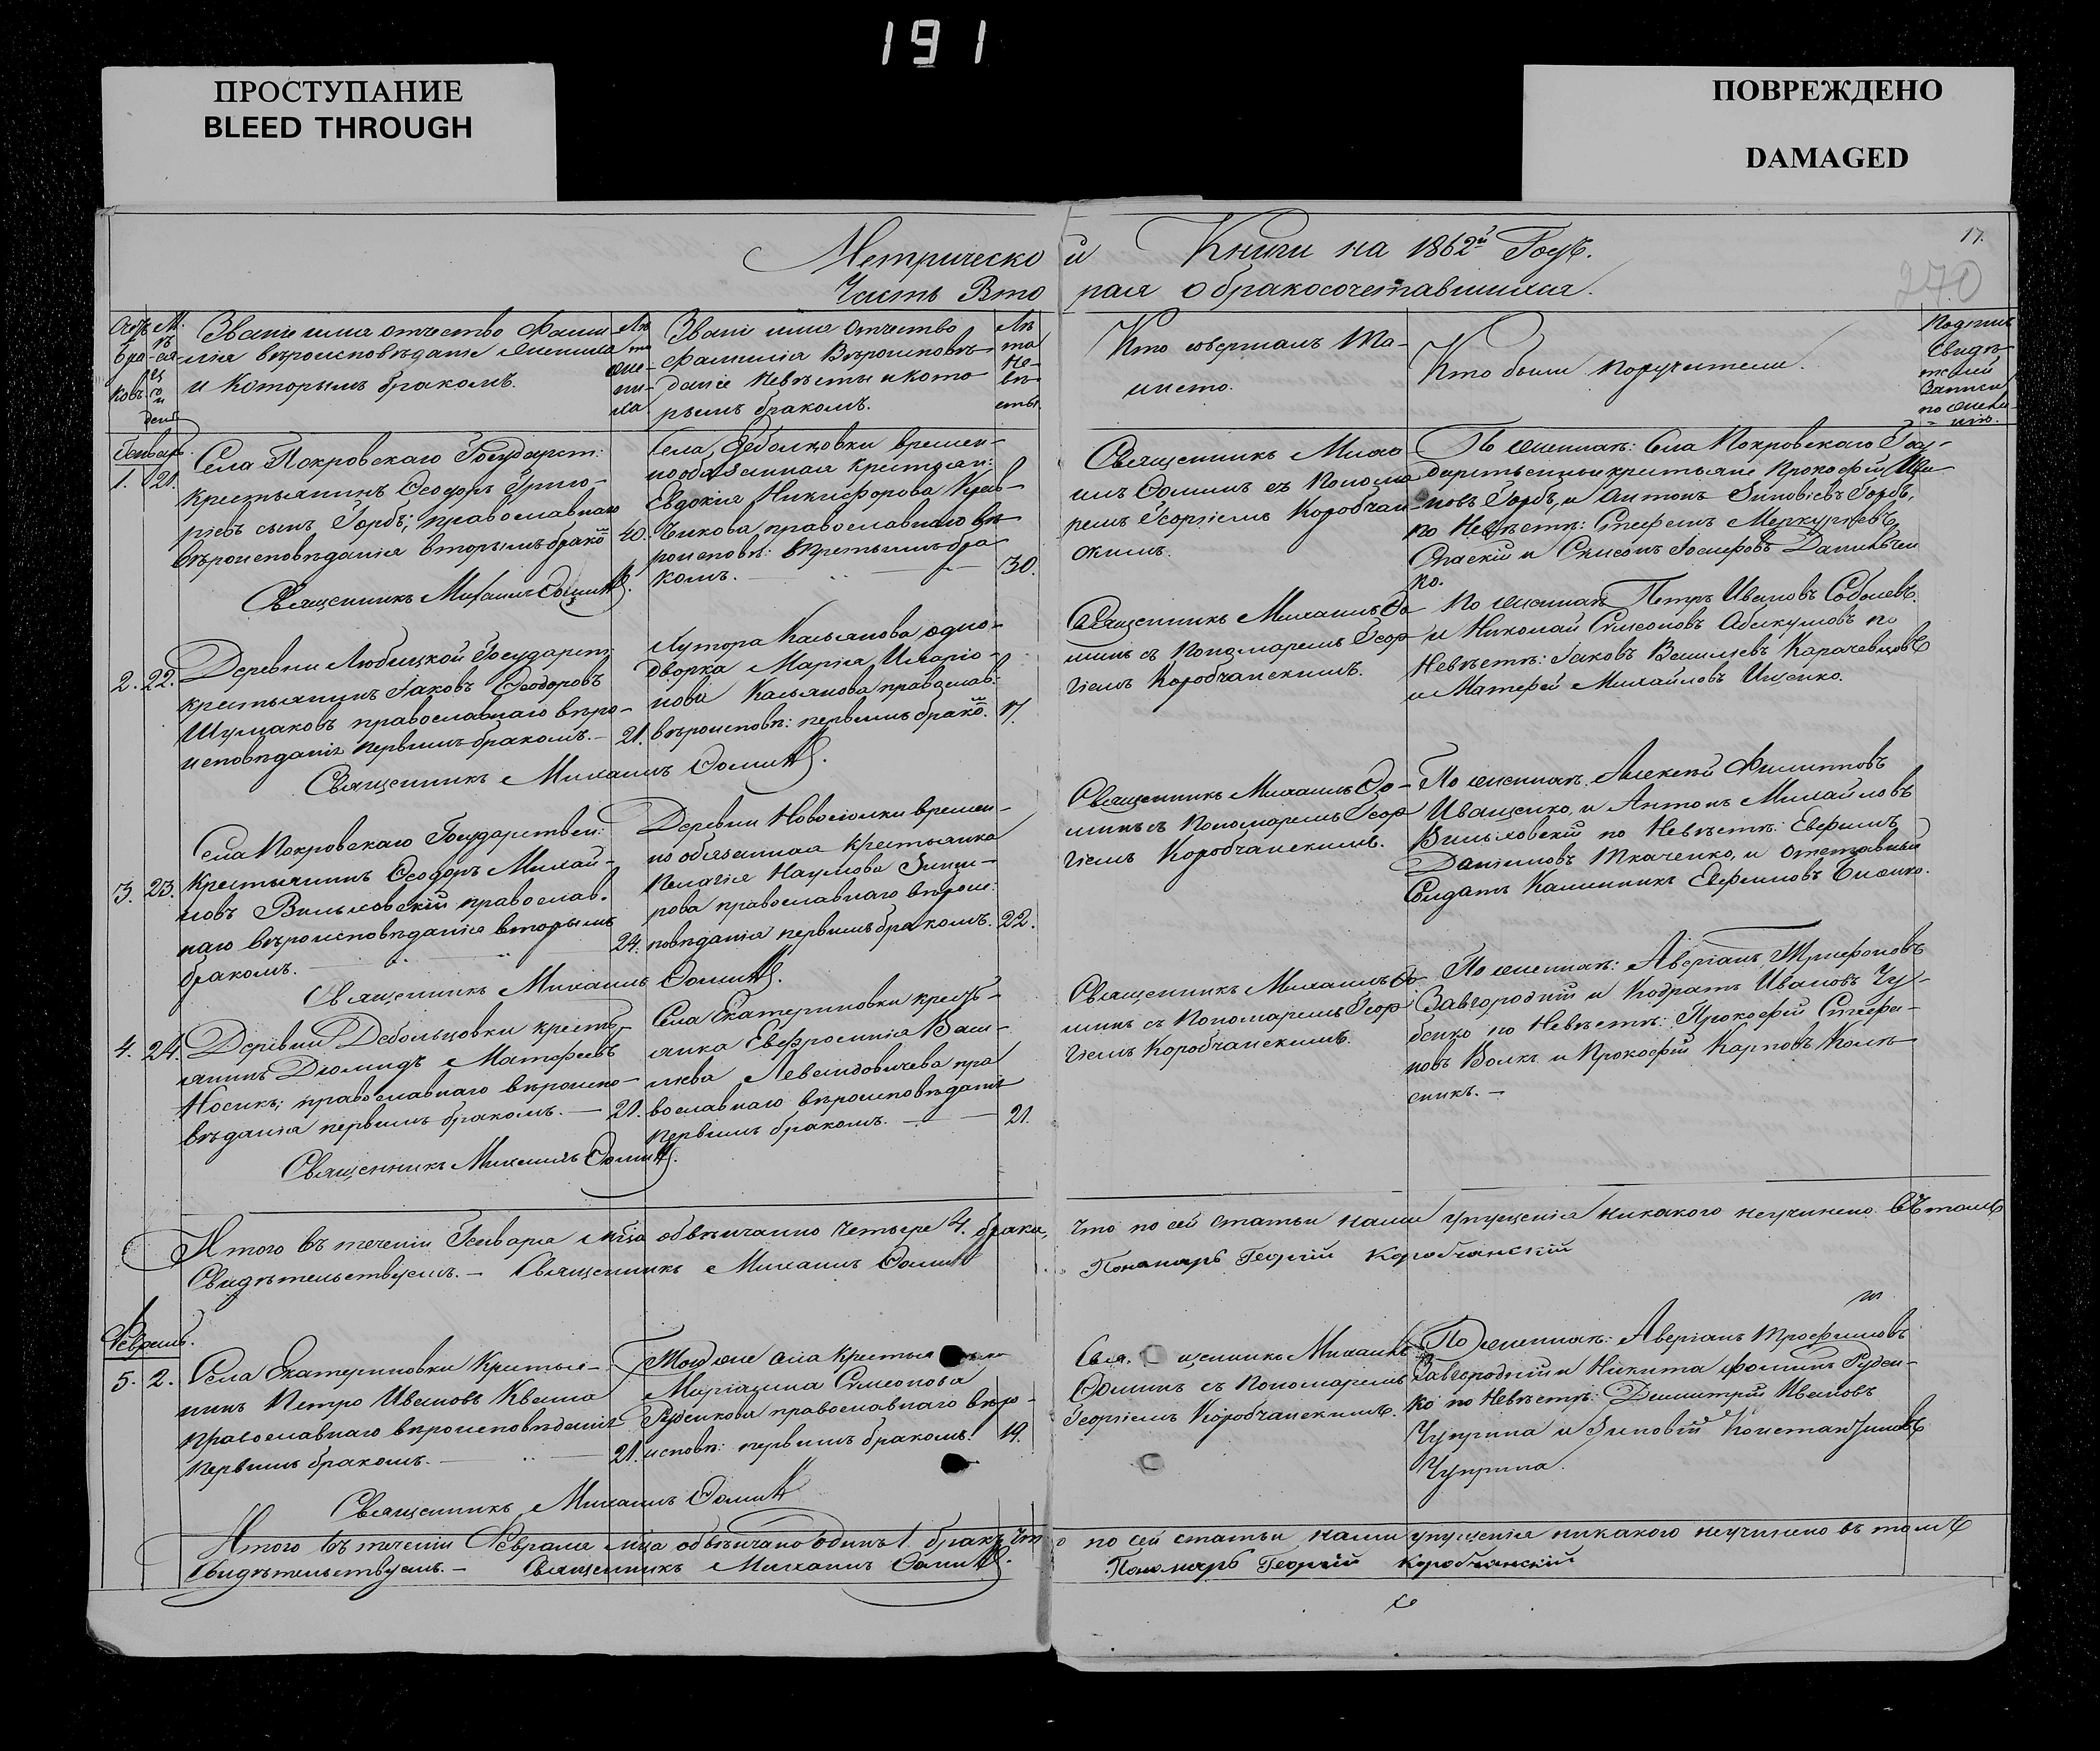 191
ПРОСТУПАНИЕ
BLEED THROUGH
ПОВРЕЖДЕНО
DAMAGED
17.
270
Метрической Книги на 1862й Годъ.
Часть Вторая о бракосочетавшихся.
Званіе имя отчество Фами-
лія вѣроисповѣданіе жениха
и которымъ бракомъ.
Лѣ
та
же-
ни-
ха.
Званіе имя отчество
фамилія Вѣроисповѣ-
даніе невѣсты и кото
рымъ бракомъ.
Лѣ
та
не-
вѣ-
сты.
Кто совершалъ Та-
инство.
Кто были поручители.
Подпись
Свидѣ-
телей
Записи
по жела-
нію.
Генварь.
1. 21.
Села Покровскаго Государст:
крестьянинъ Ѳеодоръ Григо-
ріевъ сынъ Горбъ; православнаго
вѣроисповѣданія вторымъ брако
40.
Священникъ Михаилъ Ѳоминъ.
Села Дебальцовки времен-
но обязанная крестьян:
Евдокія Никифорова
православнаго вѣ
роисповѣ: третьимъ бра
комъ.
30.
Священникъ Михаи
илъ Ѳоминъ съ Понома
ремъ Георгіемъ Коробчан
скимъ.
По женихѣ: Села Покровскаго Госу-
дарственные крестьяне Прокофій
Горбъ, и Антонъ Зиновіевъ Горбъ,
по Невѣстѣ: Стефанъ Меркуріевъ
Спаскій и Симеонъ Іосифовъ Данильчен
ко.
2. 22.
Деревни Любицкой Государст:
крестьянинъ Іаковъ Ѳеодоровъ
Шумаковъ православнаго вѣро-
исповѣданія первымъ бракомъ.
21.
Священникъ Михаилъ Ѳоминъ.
Хутора Касьянова одно-
дворка Марія Иларіо-
нова Касьянова православ:
вѣроисповѣ: первымъ брако.
17.
Священникъ Михаилъ Ѳо
минъ съ Пономаремъ Геор
гіемъ Коробчанскимъ.
По женихѣ Петръ Ивановъ Соболевъ.
и Николай Симеоновъ Абакумовъ по
Невѣстѣ: Іаковъ Васильевъ Карачевцовъ
и Матфей Михайловъ Ищенко.
3. 23.
Села Покровскаго Государствен:
Крестьянинъ Ѳеодоръ Михай-
ловъ Вильховскій православ-
наго вѣроисповѣданія вторымъ
бракомъ.
24.
Священникъ Михаилъ Ѳоминъ.
Деревни Новоселки времен-
но обязанная крестьянка
Пелагія Наумова
православнаго вѣроис
повѣданія первымъ бракомъ.
22.
Священникъ Михаилъ Ѳо-
минъ съ Пономаремъ Геор
гіемъ Коробчанскимъ.
По женихѣ. Алексѣй Филиповъ
Иващенко, и Антонъ Михайловъ
Вильховскій по Невѣстѣ: Евфимъ
Даніиловъ Ткаченко, и отставный
Солдатъ Калинникъ Евфимовъ
4. 24.
Деревни Дебальцовки кресть-
янинъ Діомидъ Матфеевъ
Носикъ; православнаго вѣроиспо-
вѣданія первымъ бракомъ.
21.
Священникъ Михаилъ Ѳоминъ.
Села Екатериновки кресть-
янка Евфросинія Васи-
православнаго вѣроисповѣданія
первымъ бракомъ.
21.
Священникъ Михаилъ Ѳо-
минъ съ Пономаремъ Геор
гіемъ Коробчанскимъ.
По женихѣ: Аверіанъ Трифоновъ
Завгородній и Кодратъ Ивановъ Чу-
бенко по Невѣстѣ: Прокофій Стефа-
новъ Волкъ и Прокофій Карповъ Колѣ
сникъ.
Итого въ теченіи Генваря мѣсяца обвѣнчанно четыре 4. брака, что по сей статьи нами упущенія никакого неучинено въ томъ
Свидѣтельствуемъ. — Священникъ Михаилъ Ѳоминъ
Пономарь Георгій Коробчанскій
Февраль.
5. 2.
Села Екатериновки Крестья-
нинъ Петро Ивановъ Кваша
православнаго вѣроисповѣданія
первымъ бракомъ.
21.
Священникъ Михаилъ Ѳоминъ
Того же села крестья
Симеонова
Руденкова православнаго вѣро-
исповѣ: первымъ бракомъ.
19.
Священникъ Михаилъ
Ѳоминъ съ Пономаремъ
Георгіемъ Коробчанскимъ.
По женихѣ: Аверіанъ Трофимовъ
Завгородній и Никита Фоминъ Руден-
ко по Невѣстѣ: Димитрій Ивановъ
Чуприна и Зиновій Константиновъ
Чуприна.
Итого въ теченіи Февраля мѣсяца обвѣнчано одинъ 1. бракъ что по сей статьи нами упущенія никакого неучинено въ томъ
Свидѣтельствуемъ. — Священникъ Михаилъ Ѳоминъ.
Пономарь Георгій Коробчанскій